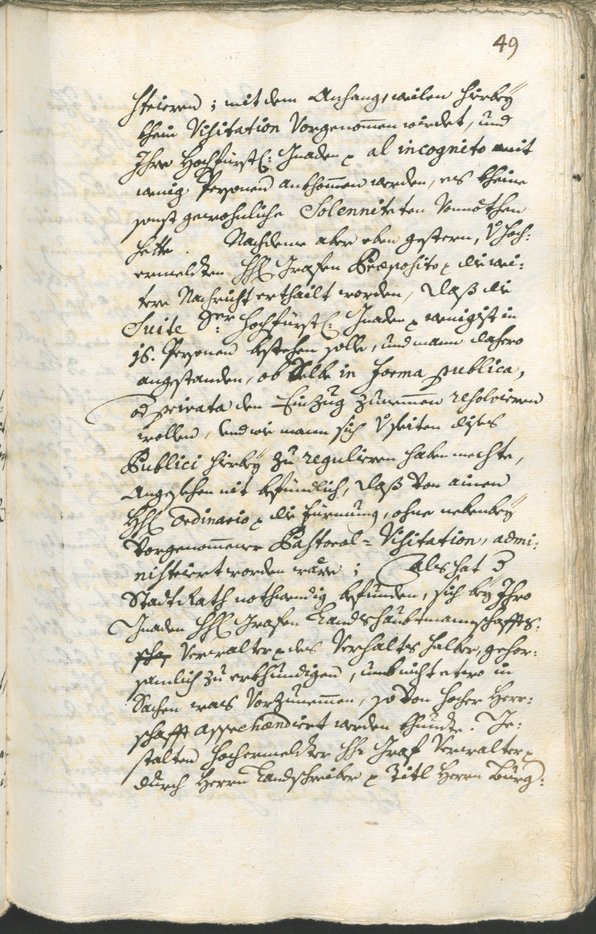 49
steieren; mit dem Anhang, weilen hierbey
khein Visitation vorgenommen würdet, und
Ihro Hochfürstl: Gnaden p al incognito mit
wenig Persohnen ankhommen werden, es kheine
sonst gewohnliche Solenniteten vonnöthen
hette. Nachdeme aber eben gestern, Vhoch-
ermeldten HH: Grafen Præposito p die wei-
tere Nachricht erthailt worden, daß die
Suite Der Hochfürstl: Gnaden p wenigist in
36. Persohnen bestehen solle, und mann dahero
angstanden, ob Selbe in forma publica,
od privata den Einzug zunemmen resolvieren
wollen, und wie mann sich V seiten dises
Publici hierbey zu regulieren haben mechte,
Angesehen nit befündlich, daß von ainen
HH: Ordinario p die Fürmung, ohne nebenbey
vorgenommener Pastoral-Visitation, admi-
nistriert worden wäre; Als hat
Stadt Rath nothwendig befunden, sich bey Ihro
Gnaden HH: Grafen Landtshaubtmannschaffts-
Verwalter p des Verhalts halber, gehor-
samlich zu erkhundigen, umb nicht etwo in
Sachen was Vorzunemmen, so von hocher Herr-
schafft apprehendiert werden khundte. Ge-
stalten hochermeldter HH: Graf Verwalter p
durch Herrn Landtschreiber p Titl Herrn Burg-